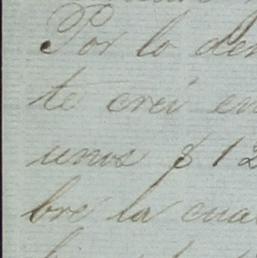 Por lo de
te crei en
unos $ 12
bre la cua